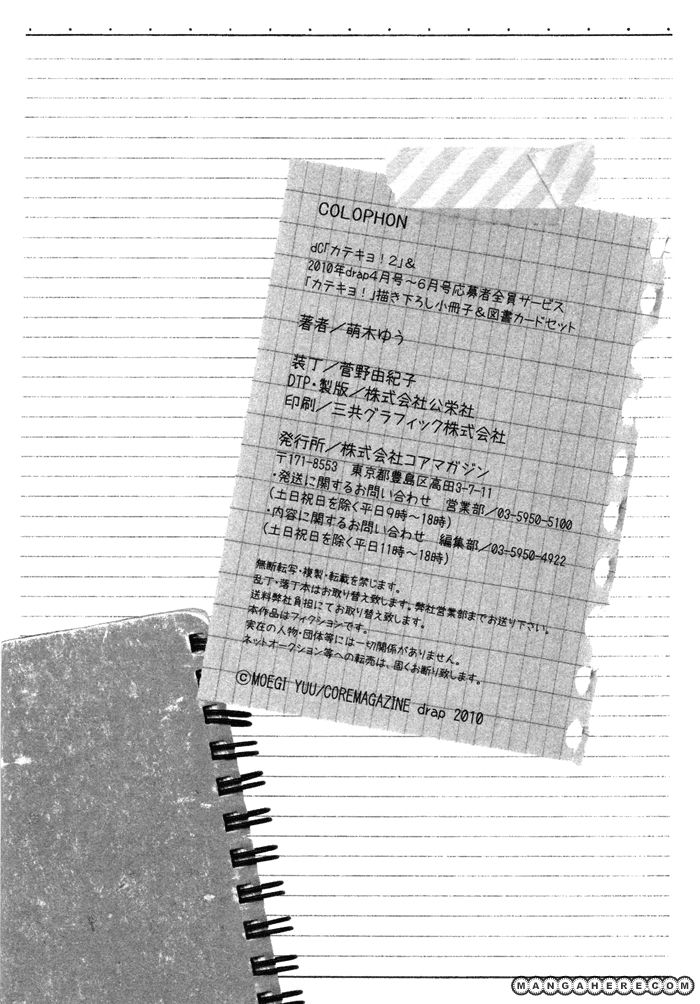 COLOPHON
dC「カテキョ！2」&
2010年drap4月号～6月号応募者全員サービス
「カテキョ！」描き下ろし小冊子＆図書カードセット
著者／萌木ゆう
装丁／菅野由紀子
DTP・製版／株式会社公栄社
印刷／三共グラフィック株式会社
発行所／株式会社コアマガジン
〒171-8553　東京都豊島区高田3-7-11
・発送に関するお問い合わせ　営業部／03-5950-5100
(土日祝日を除く平日9時～18時)
・内容に関するお問い合わせ　編集部／03-5950-4922
(土日祝日を除く平日11時～18時)
無断転写・複製・転載を禁じます。
乱丁・落丁本はお取り替え致します。弊社営業部までお送り下さい。
送料弊社負担にてお取り替え致します。
本作品はフィクションです。
実在の人物・団体等には一切関係がありません。
ネットオークション等への転売は、固くお断り致します。
©MOEGI YUU/COREMAGAZINE drap 2010
MANGAHERE.COM